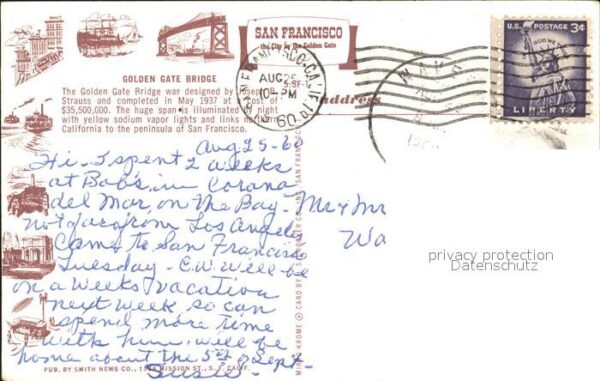 SAN FRANCISCO
the City by the Golden Gate
U.S. POSTAGE 3¢
LIBERTY
SAN FRANCISCO, CALIF.
AUG 25
10 PM
60
GOLDEN GATE BRIDGE
The Golden Gate Bridge was designed by Joseph
Strauss and completed in May 1937 at a cost of
$35,500,000. The huge span is illuminated by night
with yellow sodium vapor lights and links northern
California to the peninsula of San Francisco.
address
Aug 25-60
Hi. I spent 2 weeks
at Bob's in Corona
del Mar, on the Bay.
not far from Los Angeles
Came to San Francisco
Tuesday - C.W. will be
on a weeks vacation
next week so can
spend more time
with him. Will be
home about the 5th of Sept.
Susie
Mr & Mr
Wa
privacy protection
Datenschutz
PUB. BY SMITH NEWS CO., MISSION ST., S. F., CALIF.